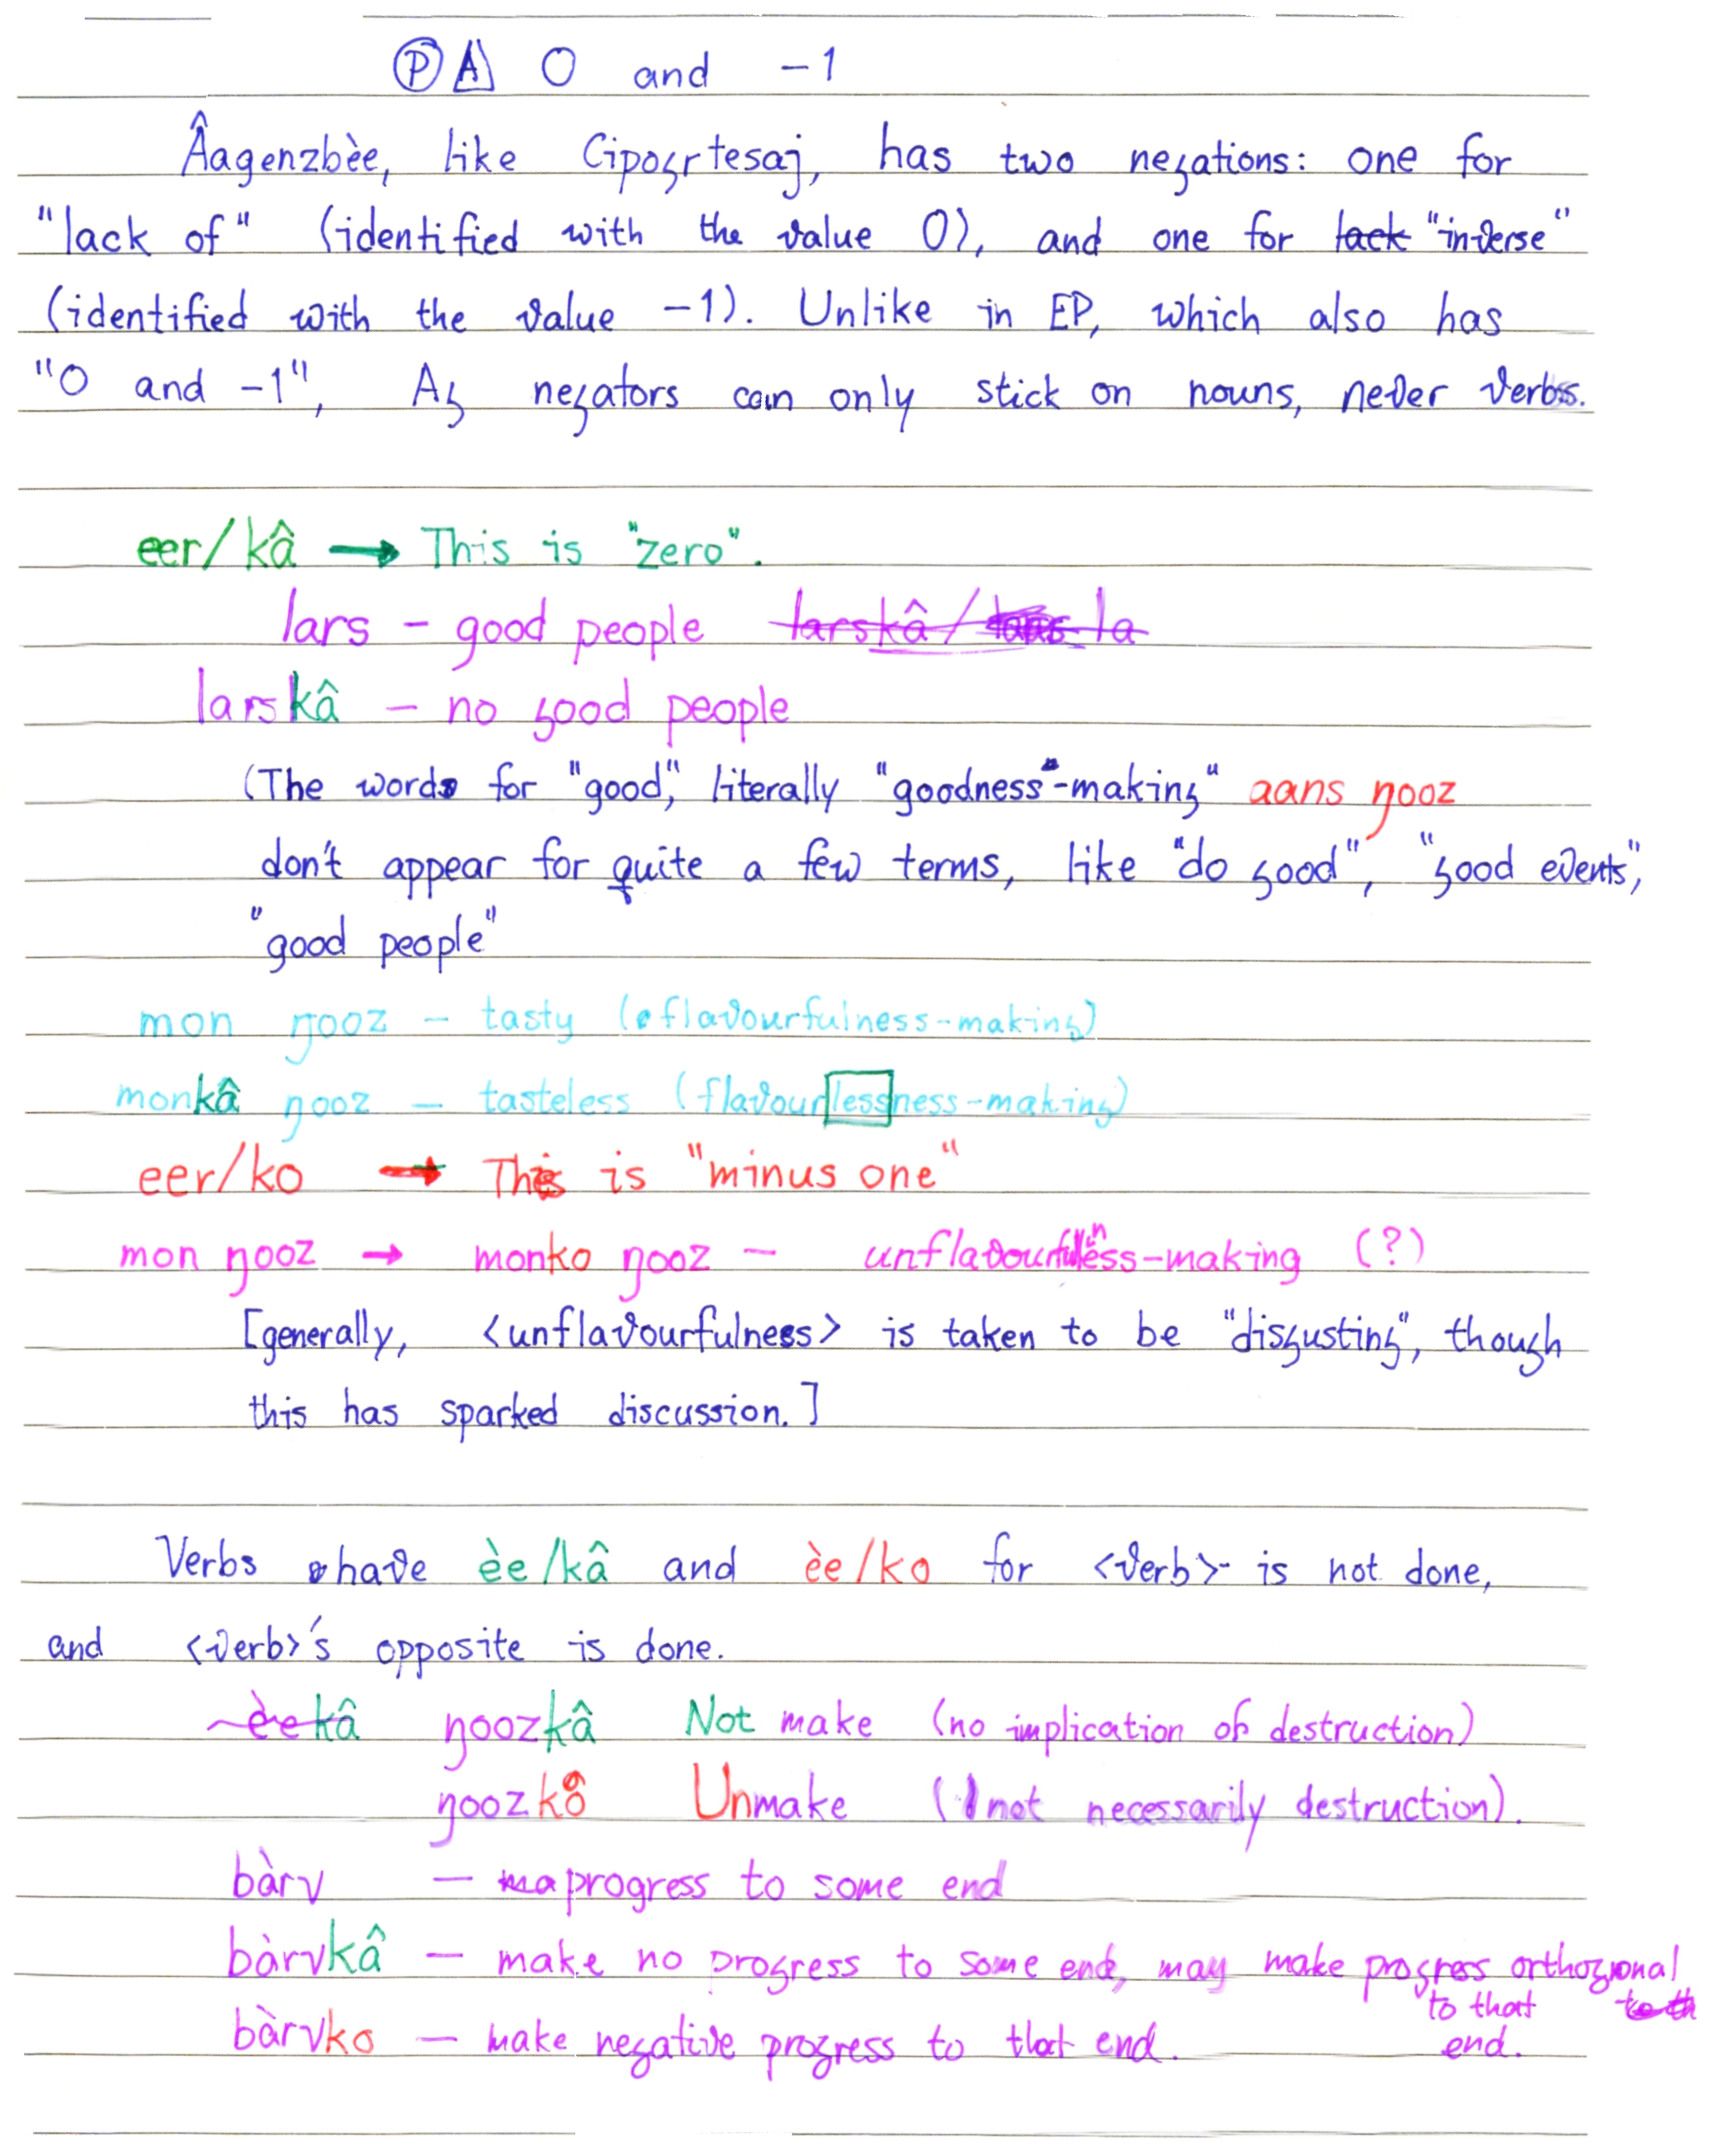 Ⓟ A 0 and -1
Âagenzbèe, like Ciposrtesaj, has two negations: one for
"lack of" (identified with the value 0), and one for lack "inverse"
(identified with the value -1). Unlike in EP, which also has
"0 and -1", Ag negators can only stick on nouns, never verbs.
eer/kâ → This is "zero".
lars - good people larskâ/ la
larskâ - no good people
(The words for "good", literally "goodness-making" aans ŋooz
don't appear for quite a few terms, like "do good", "good events",
"good people"
mon ŋooz - tasty (flavourfulness-making)
monkâ ŋooz - tasteless (flavourlessness-making)
eer/ko → This is "minus one"
mon ŋooz → monko ŋooz - -making (?)
[generally, <unflavourfulness> is taken to be "disgusting", though
this has sparked discussion.]
Verbs have èe/kâ and èe/ko for <verb> is not done,
and <verb>'s opposite is done.
èekâ ŋoozkâ Not make (no implication of destruction)
ŋoozko Unmake (not necessarily destruction).
bàrv - progress to some end
bàrvkâ - make no progress to some end, may make progress orthogonal
to that to th
bàrvko - make negative progress to that end. end.